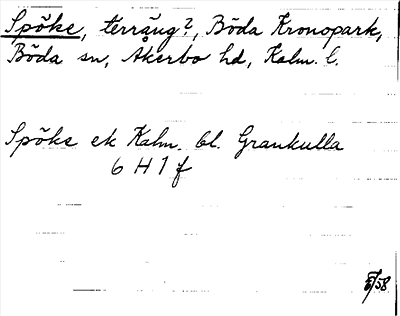 Spöke, terräng?, Böda Kronopark,
Böda sn, Åkerbo hd, Kalm. l.
Spöke ek Kalm. bl. Grankulla
6 H 1 f
/58